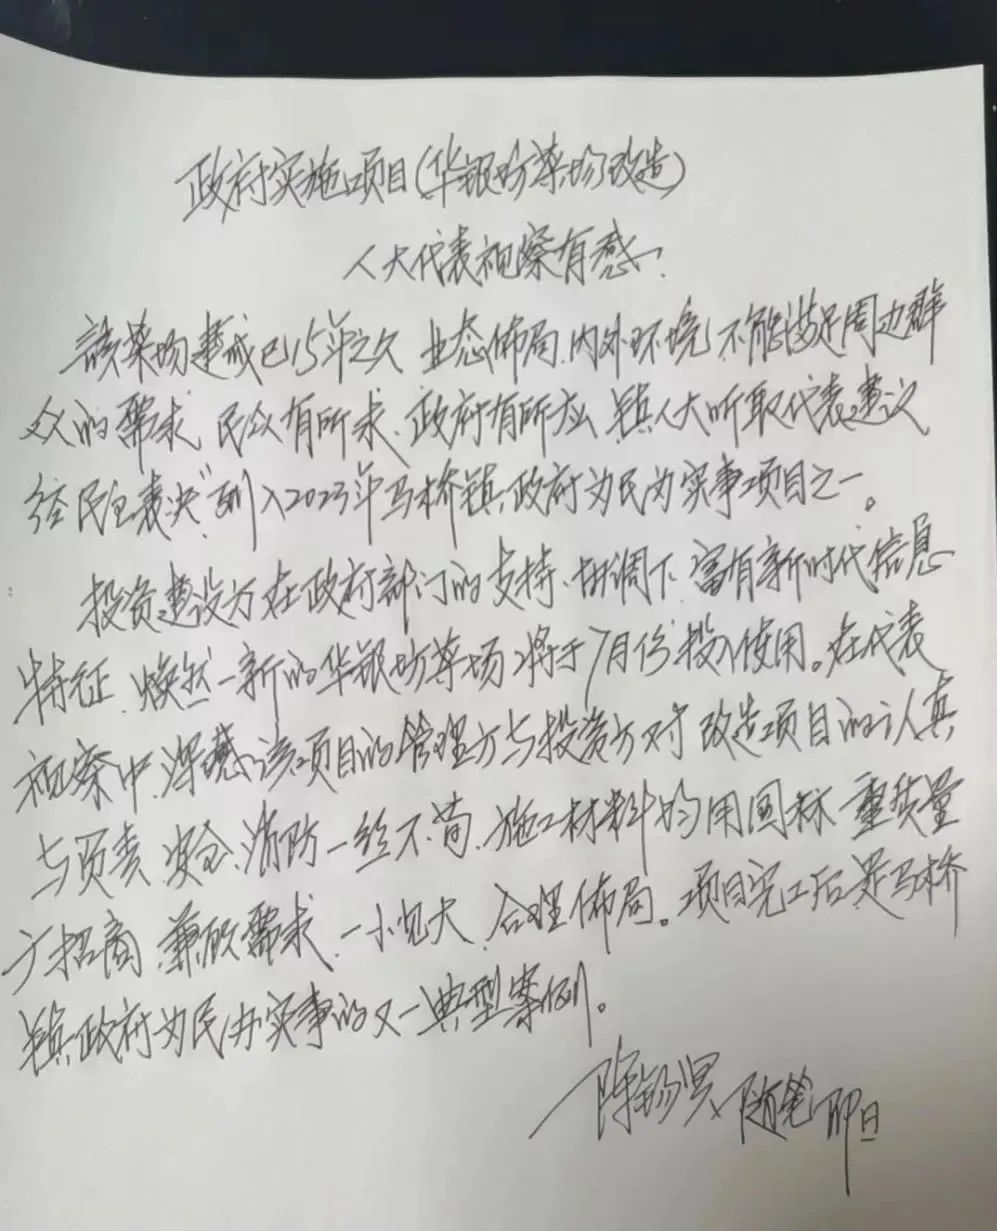 政府实施项目(华银坊菜场改造)
人大代表视察有感
該菜场建成已15年之久 业态佈局、内外环境 不能满足周边群
众的需求、民众有所求、政府有所应 镇人大听取代表建议
经民主表决"列入2023年马桥镇政府为民办实事项目之一。
投资建设方在政府部门的支持、协调下、富有新时代信息
特征、焕然一新的华银坊菜场将于7月份投入使用。在代表
视察中、深感该项目的管理方与投资方对改造项目的认真
与负责、安全、消防一丝不苟、施工材料均用国标 重质量
广招商、兼顾需求、一小见大、合理佈局。项目完工后是马桥
镇政府为民办实事的又一典型案例。
陈锡 随笔 即日